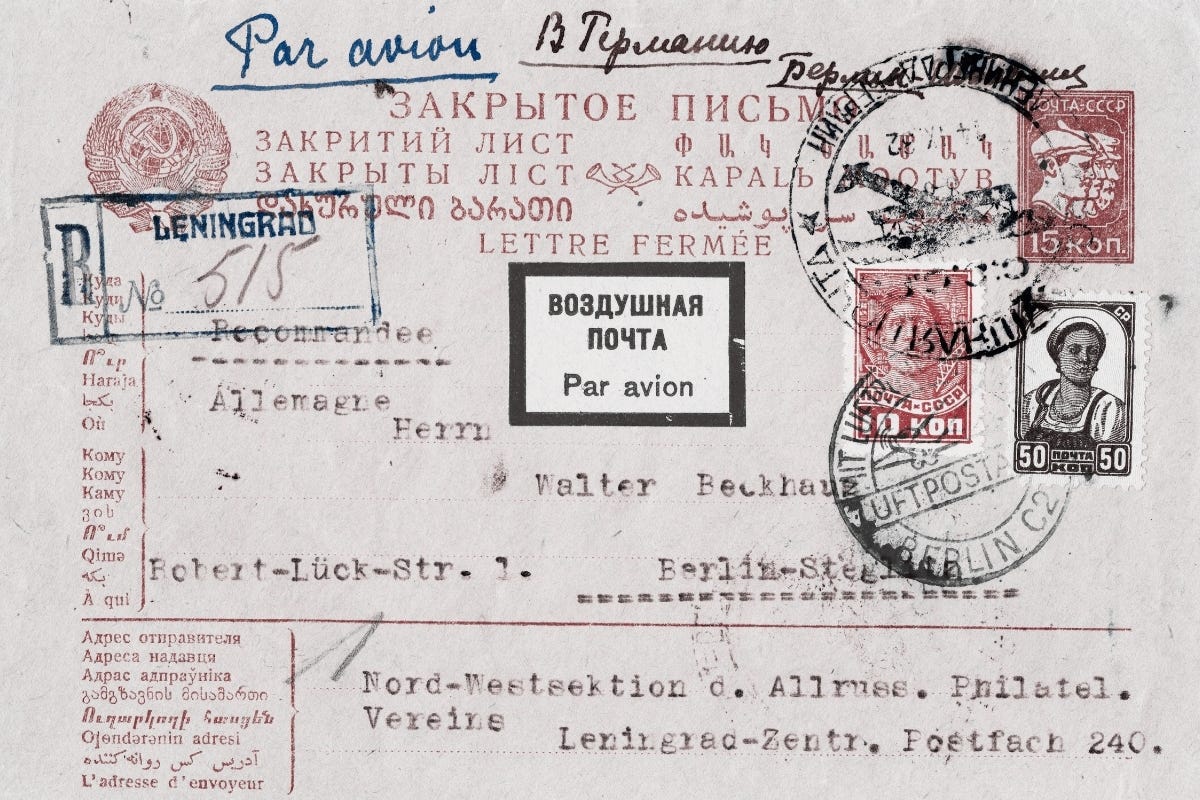 Par avion
В Германию
Берлин
ЗАКРЫТОЕ ПИСЬМО
ПОЧТА-СССР
15 КОП.
ЗАКРИТИЙ ЛИСТ
ЗАКРЫТЫ ЛІСТ
KAPALЬ
ԴԱԿՈՒՐՈՒԼԻ ბარათი
LETTRE FERMÉE
R
LENINGRAD
№ 515
ВОЗДУШНАЯ
ПОЧТА
Par avion
ПОЧТА-СССР
10 КОП
50 ПОЧТА КОП 50
MIT LUFTPOST
LUFTPOSTA
BERLIN C2
Куда
Куди
Куды
Ո՞ւր
Haraja
Où
Recommandee
Allemagne
Herrn
Кому
Кому
Каму
ვის
Ո՞ւմ
Qimə
À qui
Walter Beckhaus
Robert-Lück-Str. 1. Berlin-Steglitz
Адрес отправителя
Адреса надавця
Адрас адпраўніка
გამგზავნის მისამართი
Ուղարկողի հասցեն
Gɵndərənin adresi
آدریس کس روانه کننده
L'adresse d'envoyeur
Nord-Westsektion d. Allruss. Philatel.
Vereins
Leningrad-Zentr. Postfach 240.